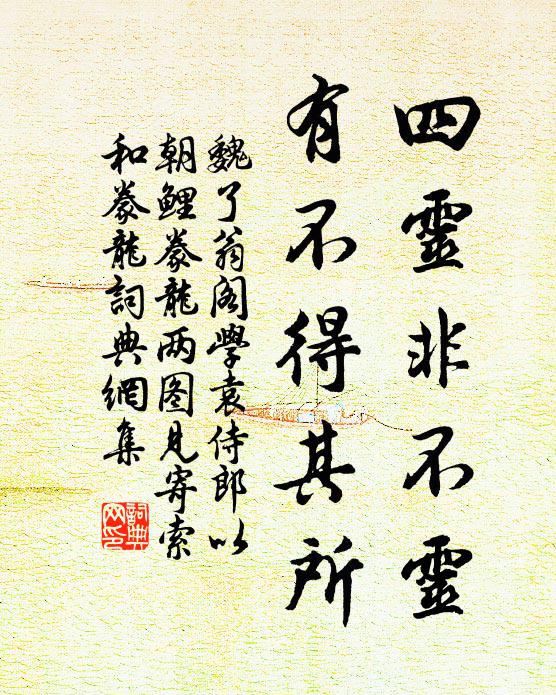 四靈非不靈
有不得其所
魏了翁閣學袁侍郎以
朝鯉豢龍两图見寄索
和豢龍詞典網集
詞典
网印